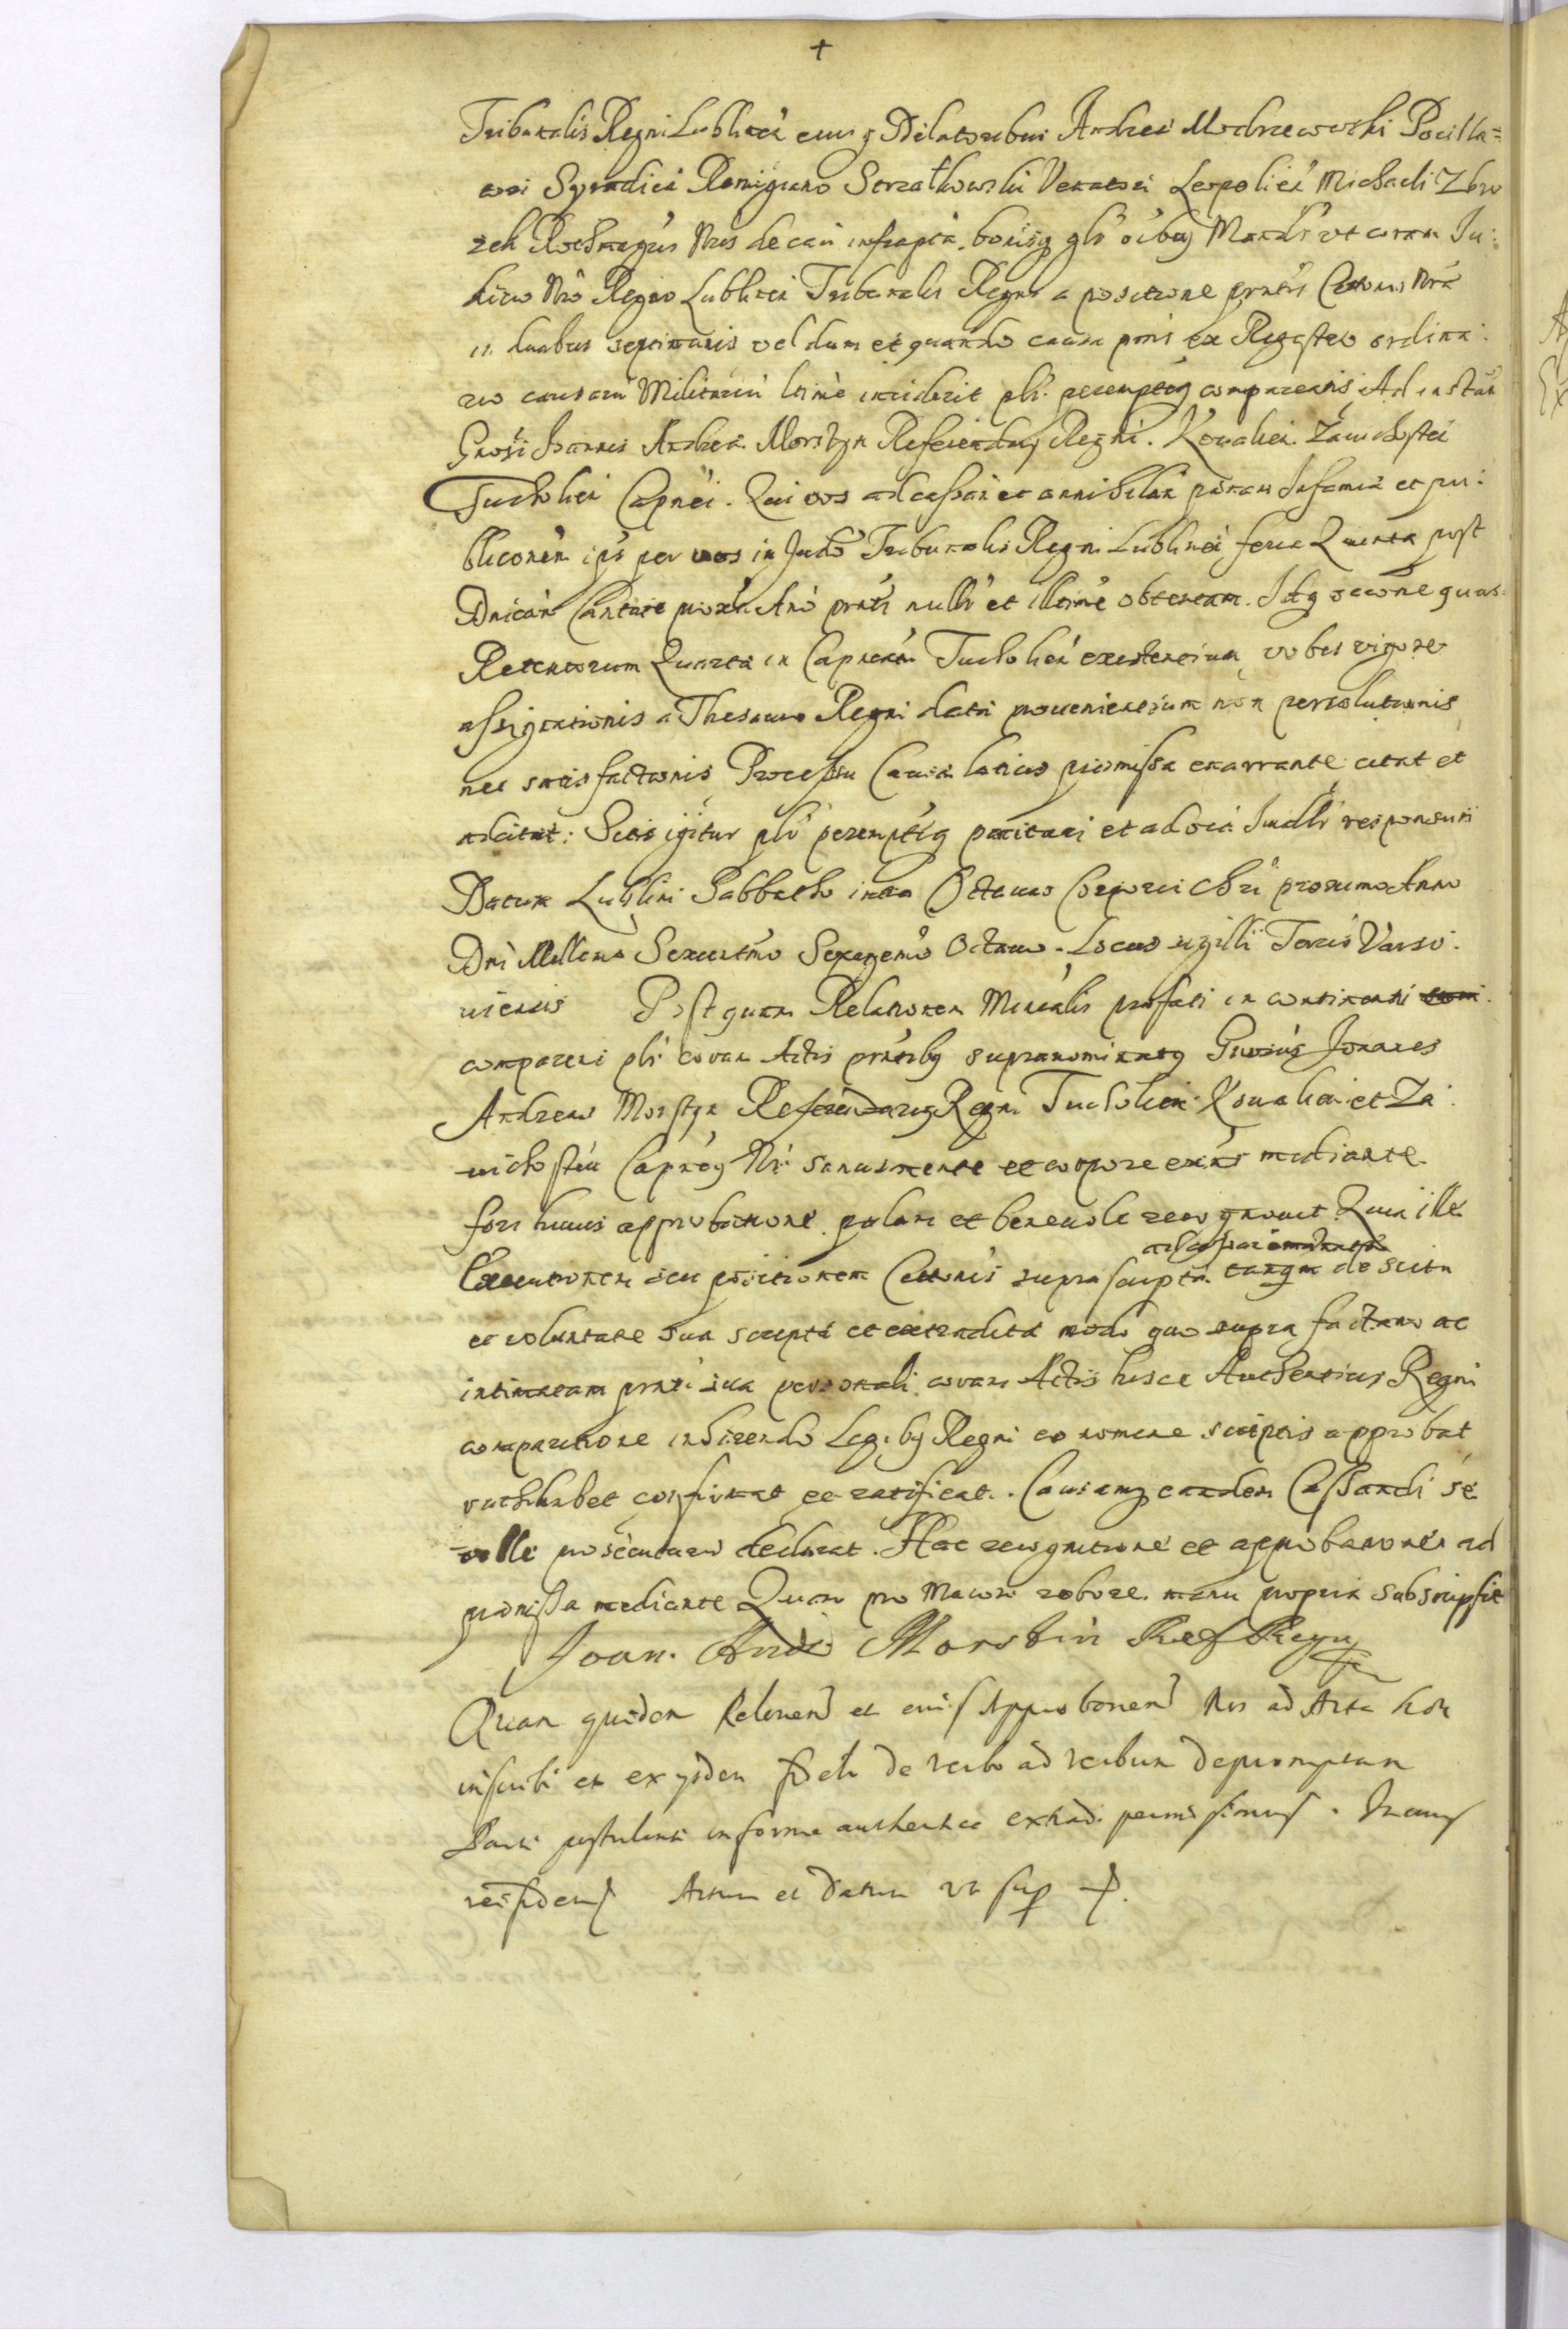 +
Tribunalis Regni Lublinen eiusq Delatoribus Andreae Modrzewowski Pocilla=
tori Syradien Remigiano Strzałkowski Venatori Leopolien Michaeli Zbro
zek Rothmagris Nris de cau infrapta. bonisq glr oibus Mandr ut coram Ju:
dicio Nro Regio Lublinen Tribunalis Regni a positione prntis Cittonis Nra
in duabus septimanis vel dum et quando causa pnis ex Regestro ordina:
rio causaru Militariu ltime inciderit plr. peremptieq compareatis Ad instan
Gnosi Joannis Andreae Morsztyn Referendarij Regni. Kovalien. Zawichosten
Tucholien Capnei. Qui vos ad cassan et annihilan pænam Infamiæ et pu:
blicconem ips per vos in Judo Tribunalis Regni Lublinen feria Quinta post
Dnicam Cantate prox Ano prnti nullr et illtime obtentam. Idq occone quas.
Retentorum Quartæ in Capneatu Tucholien existentium vobis vigore
assignationis a Thesauro Regni datæ provenientium non persolutionis
nec satisfactionis Processu Causæ latius præmissa enarrante citat et
adcitat: Sitis igitur plr peremptieq paritari et ad oia Judlr responsuri
Datum Lublini Sabbatho intra Octavas Corporis Chri proximo Anno
Dni Millmo Sexcentmo Sexagemo Octavo. Locus sigilli Terris Varso:
viensis Post quam Relationem Minlis prafati in continenti
comparens plr coram Actis prntibus supranominatus Gnosus Joannes
Andreas Morsztyn Referendarius Regni Tucholien Kovalien et Za
wichosten Capneus Nr. sanus mente et corpore exns mediante
fori huius approbatione. palam et benevole recognovit. Quia ille
Executionem seu positionem Cittonis supra scriptæ tanqm de scitu
et voluntate sua scriptæ et extraditæ modo quo supra factam ac
intimatam prnti sua personali coram Actis hisce Authenticis Regni
comparitione inhærendo Legibus Regni eo nomine scriptis approbat
rathabet confirmat et ratificat. Causamq eandem Cassandi se
velle prosecutaru declarat. Hac recognitione et approbatione ad
præmissa mediante Quam pro maiori robore. manu propria subscripsit
Joan. Andr Morstin Ref Regni
Quam quidem Relonem et eius Approbonem Nos ad Acta hæc
inscribi et ex ijsdem fideli de verbo ad verbum depromptam
Parti postulanti in forma authentica extradi permisimus.
Actum et Datum ut sup